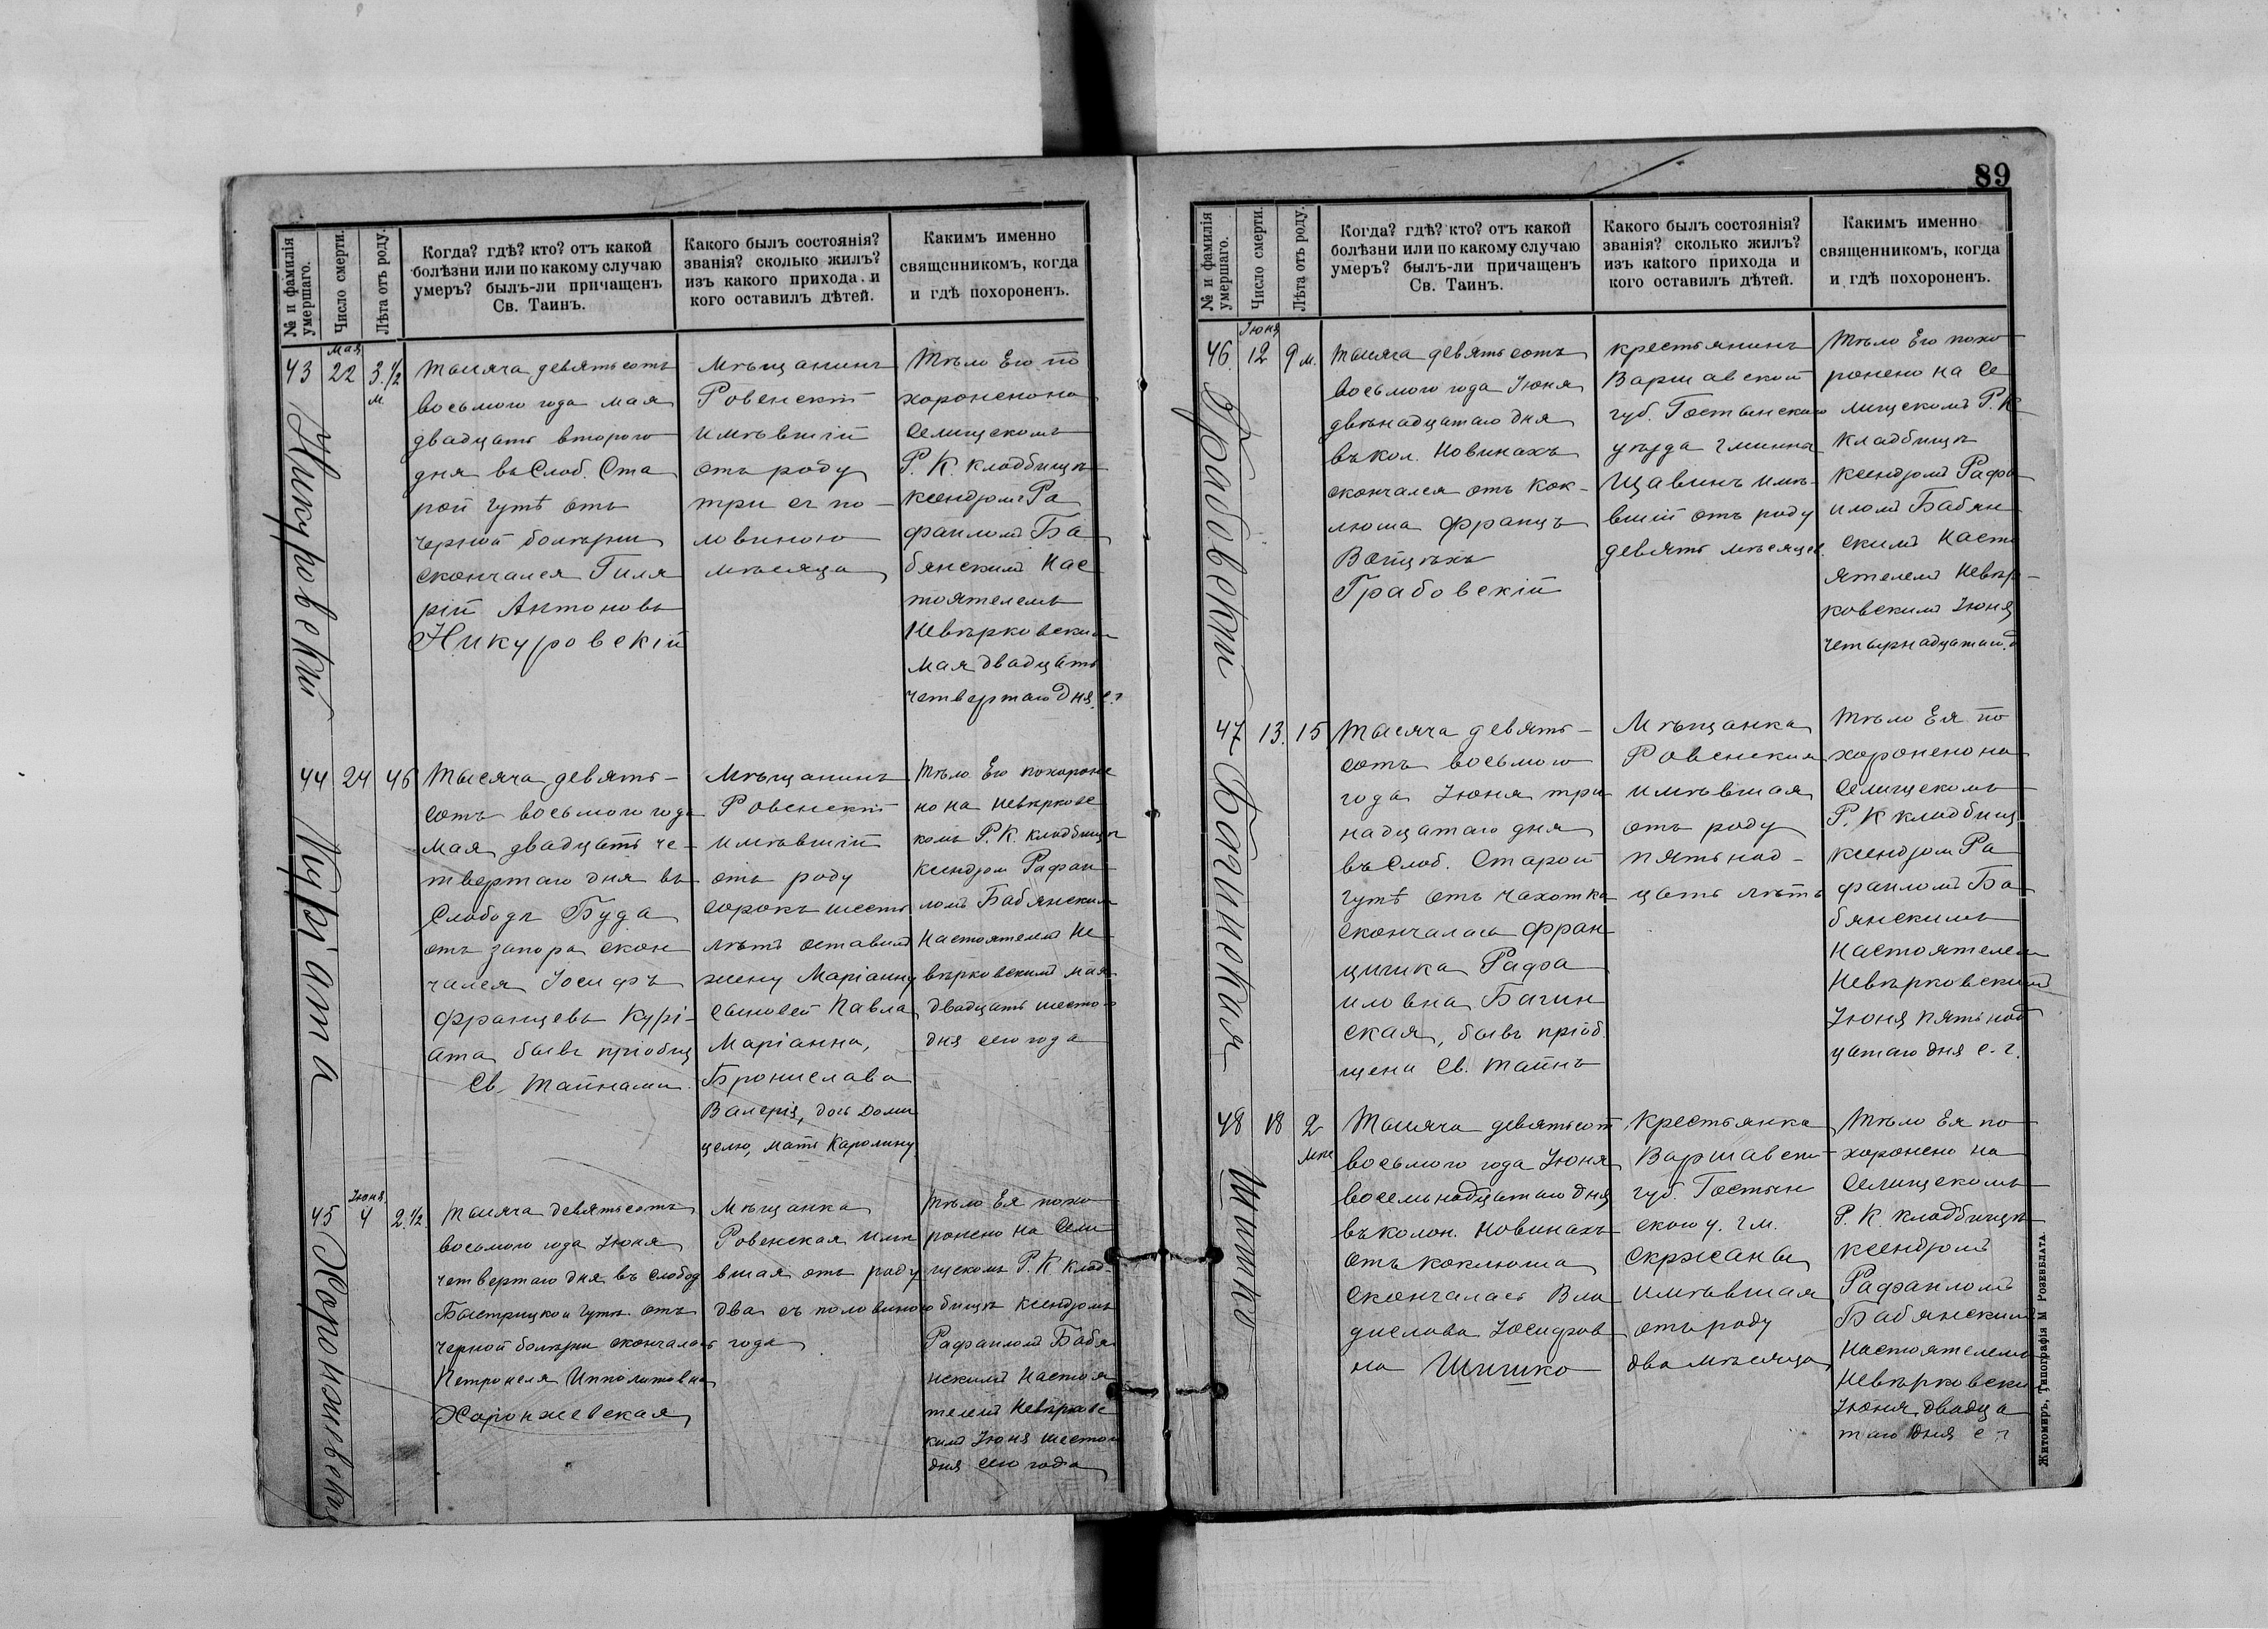 89
№ и фамилія умершаго.
Число смерти.
Лѣта отъ роду.
Когда? гдѣ? кто? отъ какой
болѣзни или по какому случаю
умеръ? былъ-ли причащенъ
Св. Таинъ.
Какого былъ состоянія?
званія? сколько жилъ?
изъ какого прихода и
кого оставилъ дѣтей.
Какимъ именно
священникомъ, когда
и гдѣ похороненъ.
43
Никуровскій
Мая
22
3.½
м
Тысяча девятьсотъ
восьмого года мая
двадцать второго
дня въ Слоб. Ста
рой Гутѣ отъ
черной болѣзни
скончался Гиля
рій Антоновъ
Никуровскій
Мѣщанинъ
Ровенскій
имѣвшій
отъ роду
три съ по-
ловиною
мѣсяца
Тѣло Его по
хоронено на
Селищскомъ
Р. К. кладбищѣ
ксендзомъ Ра
фаиломъ Ба
бянскимъ Нас
тоятелемъ
Невѣрковским
мая двадцать
четвертаго дня с. г
44
Куріата
24
46
Тысяча девять-
сотъ восьмого года
мая двадцать че-
твертаго дня въ
Слободѣ Буда
отъ запора скон
чался Іосифъ
Францевъ Курі-
ата бывъ пріобщ
Св. Тайнами.
Мѣщанинъ
Ровенскій
имѣвшій
отъ роду
сорокъ шесть
лѣтъ оставил
жену Маріанну
сыновей Павла
Маріанна,
Бронислава
Валерія, дочь Доми
целю, мать Каролину
Тѣло Его похороне
но на Невѣрковс
комъ Р. К. кладбищѣ
ксендзом Рафаи
ломъ Бабянским
Настоятелем Не
вѣрковскимъ мая
двадцать шестого
дня сего года
45
Харонжевская
Іюня
4
2.½
Тысяча девятьсотъ
восьмого года Іюня
четвертаго дня въ слобод
Быстрицкой Гутѣ отъ
черной болѣзни скончалась
Петронеля Ипполитовна
Харонжевская
Мѣщанка
Ровенская имѣ
вшая отъ роду
два съ половиною
года
Тѣло Ея похо
ронено на Сели
щскомъ Р. К. клад-
бищѣ ксендзомъ
Рафаиломъ Бабя
нскимъ Настоя
телемъ Невѣрковс
кимъ Іюня шестого
дня сего года
№ и фамилія умершаго.
Число смерти.
Лѣта отъ роду.
Когда? гдѣ? кто? отъ какой
болѣзни или по какому случаю
умеръ? былъ-ли причащенъ
Св. Таинъ.
Какого былъ состоянія?
званія? сколько жилъ?
изъ какого прихода и
кого оставилъ дѣтей.
Какимъ именно
священникомъ, когда
и гдѣ похороненъ.
46
Грабовскій
Іюня
12
9 м.
Тысяча девятьсотъ
восьмого года Іюня
двѣнадцатаго дня
въ кол. Новинахъ
скончался отъ кок-
люша Францъ
Грабовскій
крестьянинъ
Варшавской
губ. Гостынскаго
уѣзда гмина
Щавинъ имѣ-
вшій отъ роду
девять мѣсяцев.
Тѣло Его похо
ронено на Се
лищскомъ Р. К
кладбищѣ
ксендзомъ Рафа
иломъ Бабян
скимъ Насто
ятелемъ Невѣр-
ковскимъ Іюня
четырнадцатаго д
47
Багинская
13.
15
Тысяча девять-
сотъ восьмого
года Іюня три
надцатаго дня
въ Слоб. Старой
Гутѣ отъ чахотки
скончалась Фран
цишка Рафа
иловна Багин
ская, бывъ пріоб
щена Св. Тайнъ
Мѣщанка
Ровенская
имѣвшая
отъ роду
пятьнад-
цать лѣтъ
Тѣло Ея по
хоронено на
Селищскомъ
Р. К кладбищ
ксендзом Ра
фаиломъ Ба
бянскимъ
Настоятелем
Невѣрковскимъ
Іюня пятьнад
цатаго дня с. г.
48
Шишко
18
2
мѣс
Тысяча девятьсот
восьмого года Іюня
восемьнадцатаго дня
въ колон. Новинахъ
отъ коклюша
скончалась Вла
дислава Іосифов
на Шишко
Крестьянка
Варшавск-
губ. Гостын
скаго у. гм.
Скржаны
имѣвшая
отъ роду
два мѣсяца
Тѣло Ея по
хоронено на
Селищскомъ
Р. К. кладбищѣ
ксендзомъ
Рафаиломъ
Бабянским
Настоятелемъ
Невѣрковски
Іюня двадца
таго дня с. г
Житомиръ, Типографія М Розенблата